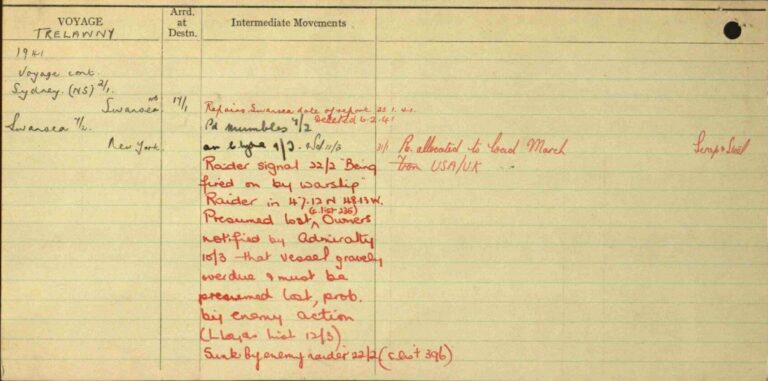 VOYAGE
Arrd. at Destn.
Intermediate Movements
TRELAWNY
1941
Voyage cont.
Sydney (NS) 2/1.
Swansea 17/1
Repairs Swansea date of report 25.1.41.
Deleted 6.2.41
Swansea 7/2.
Pd mumbles 7/2
New York.
31/1 Po. allocated to load March
Scrap & Steel
from USA/UK
Raider signal 22/2 "Being
fired on by warship"
Raider in 47.12 N 48.13 W.
(C. list 236)
Presumed lost, Owners
notified by Admiralty
10/3 - that vessel gravely
overdue & must be
presumed lost, prob.
by enemy action
(Lloyds List 12/3)
Sunk by enemy raider 22/2 (C list 396)